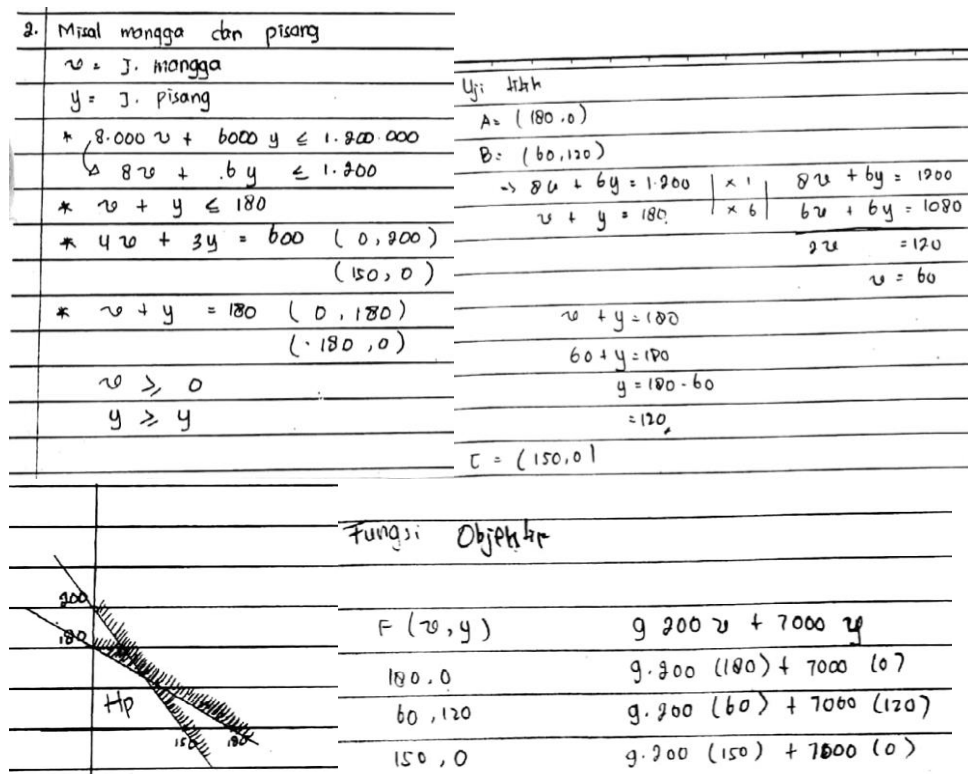 2. Misal mangga dan pisang
x = J. mangga
y = J. pisang
* 8.000 x + 6000 y ≤ 1.200.000
↳ 8x + 6y ≤ 1.200
* x + y ≤ 180
* 4x + 3y = 600 (0,200)
(150,0)
* x + y = 180 (0,180)
(180,0)
x ≥ 0
y ≥ y
Uji titik
A = (180,0)
B = (60,120)
→ 8x + 6y = 1.200 | x 1 | 8x + 6y = 1200
x + y = 180 | x 6 | 6x + 6y = 1080
2x = 120
x = 60
x + y = 180
60 + y = 180
y = 180 - 60
= 120
C = (150,0)
200
180
Hp
150 180
Fungsi Objektif
F (x,y) 9 200 x + 7000 y
180.0 9.200 (180) + 7000 (0)
60,120 9.200 (60) + 7000 (120)
150,0 9.200 (150) + 7000 (0)